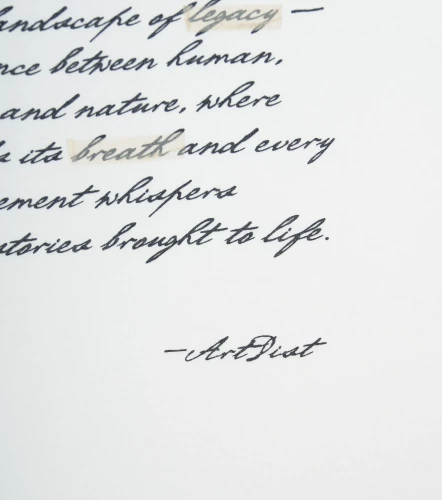 andscape of legacy —
nce between human,
and nature, where
s its breath and every
ement whispers
stories brought to life.
—ArtDist